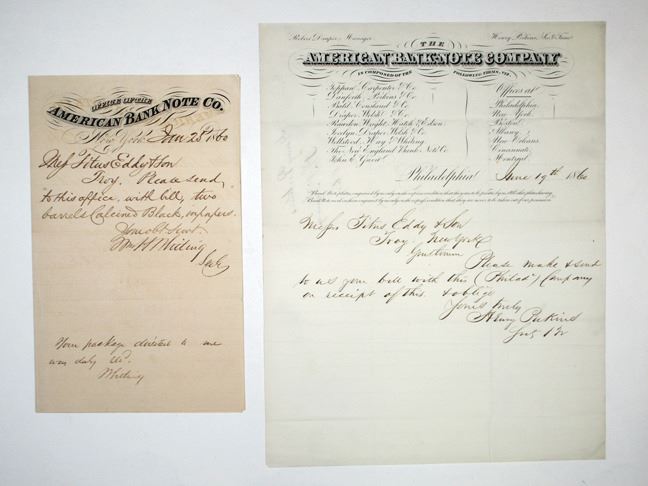 OFFICE OF THE
AMERICAN BANK NOTE CO.
New York Jan 28 1860
Mess Titus Eddy & Son
Troy. Please send,
to this office, with bill, two
barrels Calcined Black, in papers.
Your obt Servt.
Wm H Whiting
Your package directed to me
was duly
Whiting
Robert Draper, Manager.
Henry Perkins,
THE
AMERICAN BANK-NOTE COMPANY
IS COMPOSED OF THE FOLLOWING FIRMS, VIZ:
Toppan Carpenter & Co.
Danforth Perkins & Co.
Bald, Cousland & Co.
Draper Welsh & Co.
Rawdon, Wright, Hatch & Edson.
Jocelyn, Draper, Welsh & Co.
Wellstood, Hay & Whiting
The New England Bank Note Co.
John E. Gavit.
Offices at
Philadelphia.
New York.
Boston.
Albany.
New Orleans.
Cincinnati.
Montreal.
Philadelphia June 19th 1860
Messrs Titus, Eddy & Son
Troy New York
Gentlemen
Please make & send
to us your bill with this (Philada) Company
on receipt of this. & oblige
Yours truly
Henry Perkins